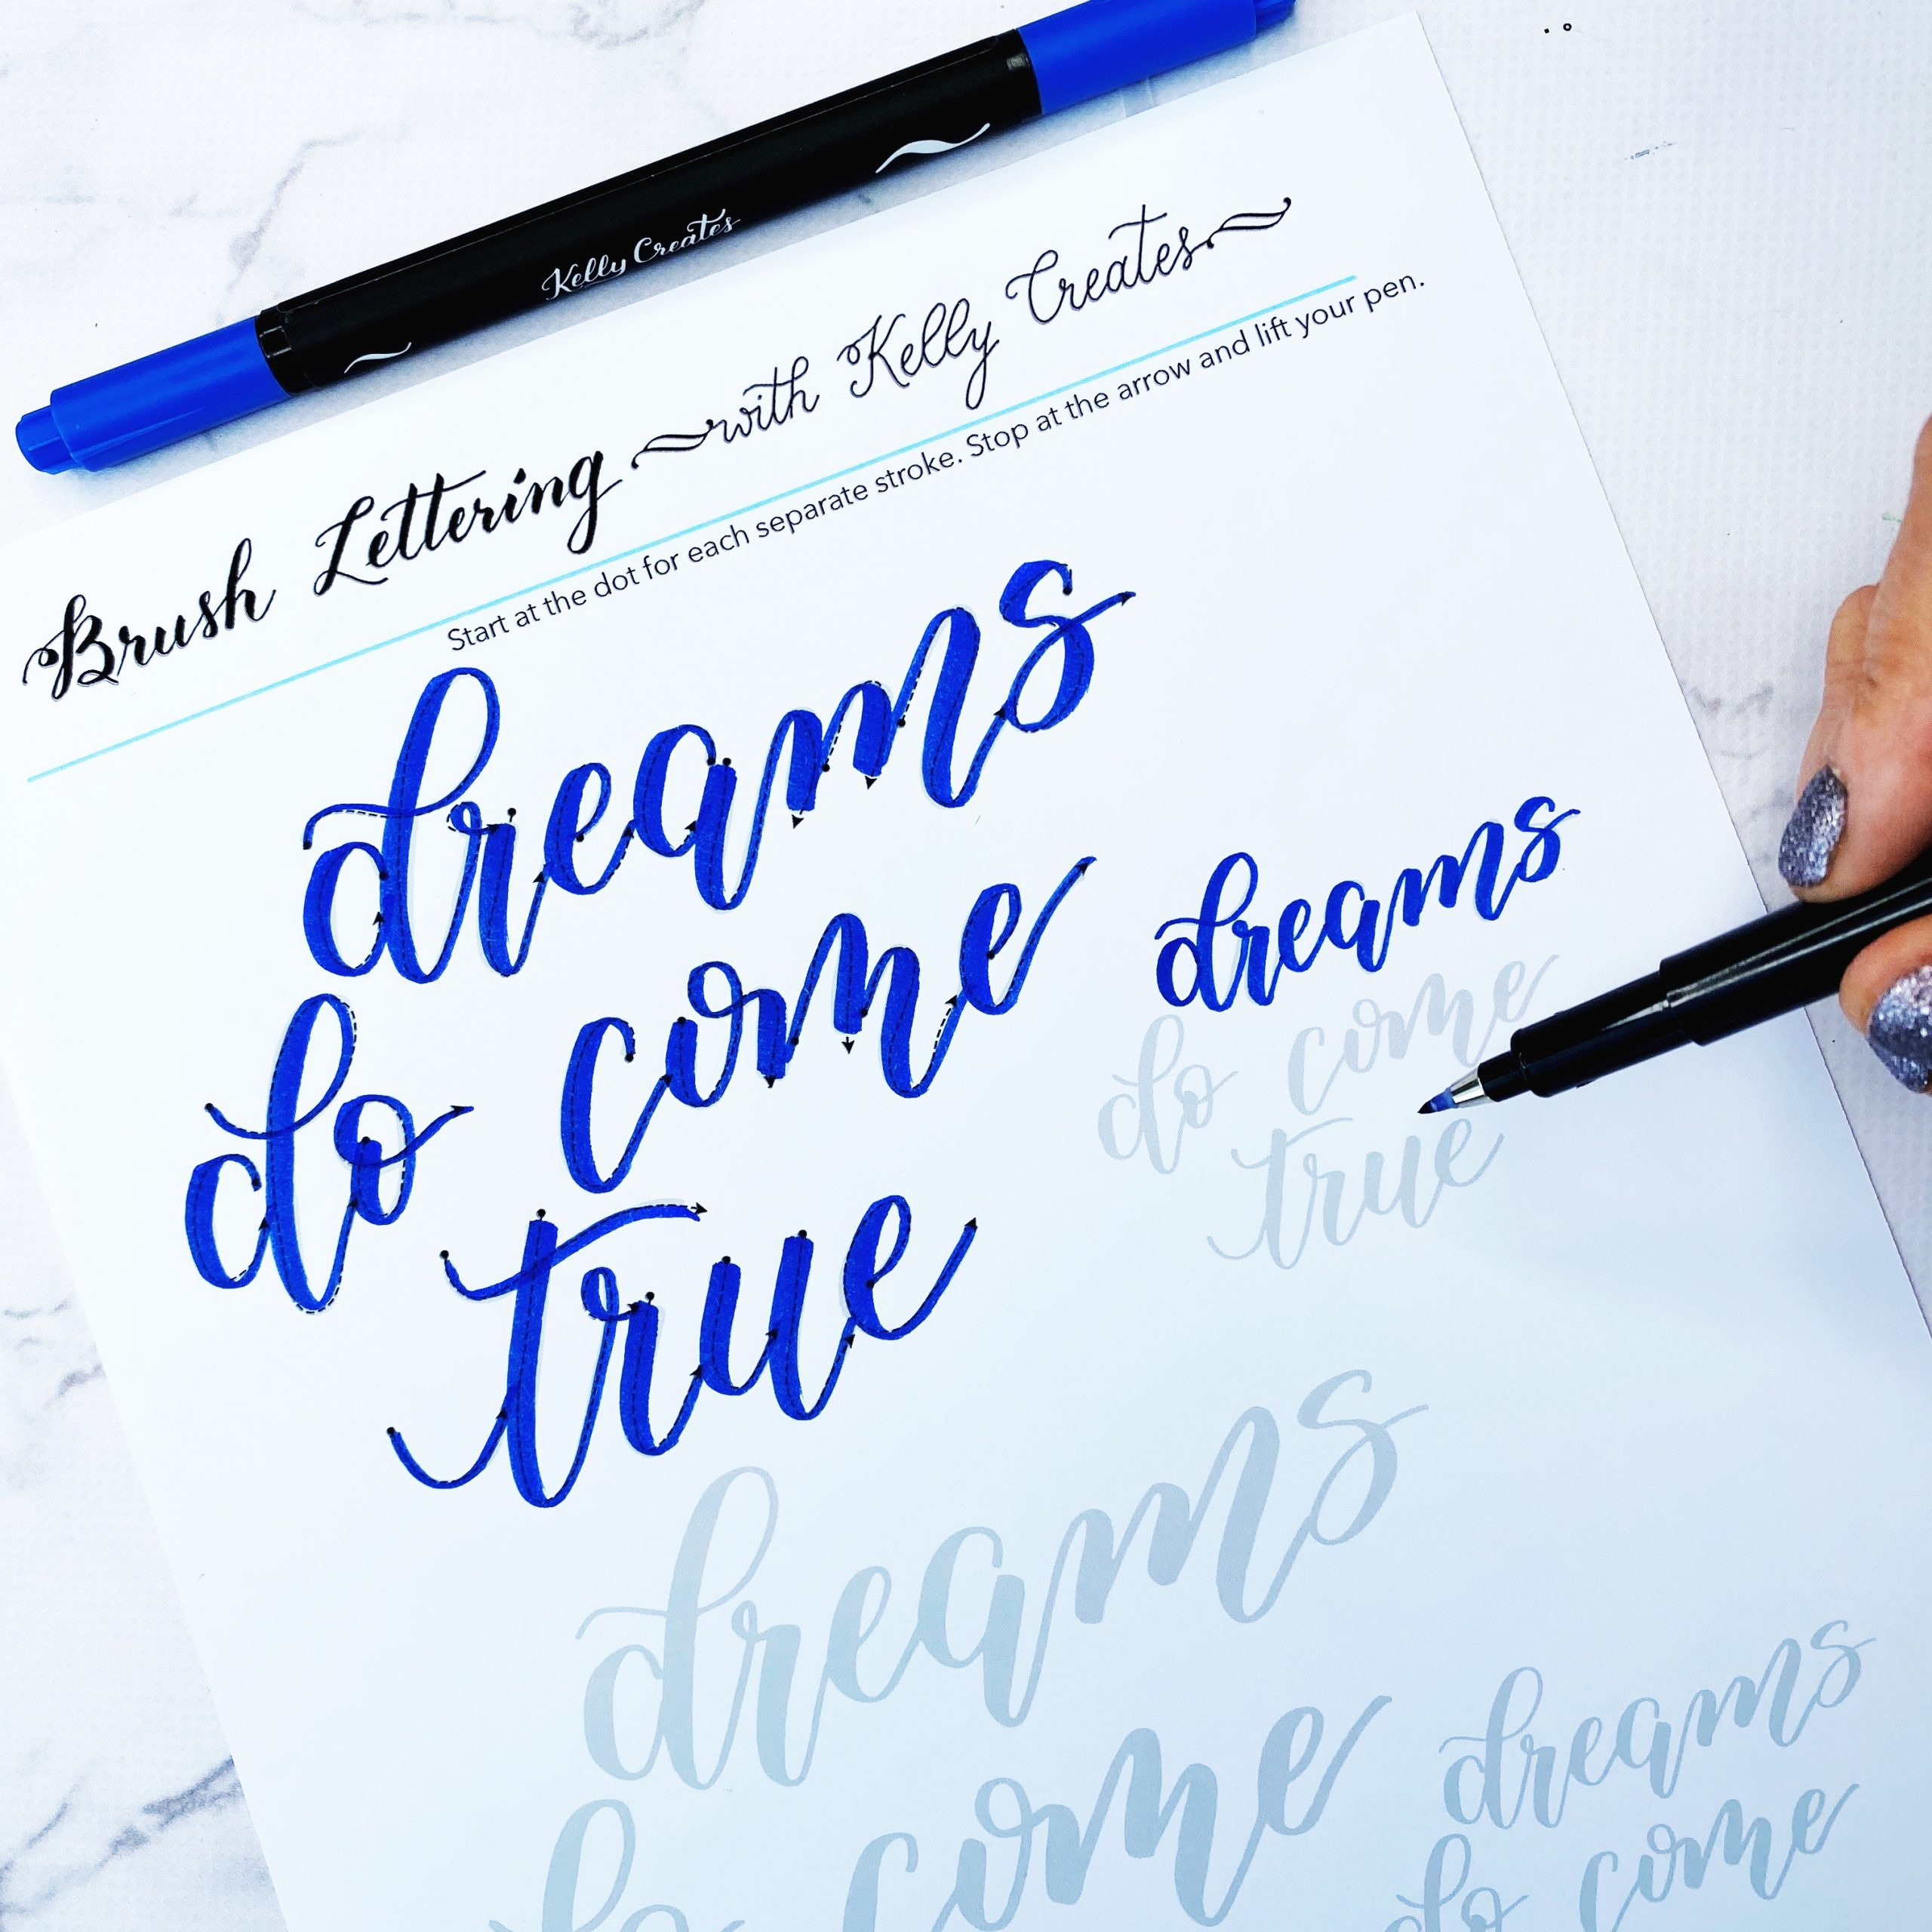 Kelly Creates
Brush Lettering with Kelly Creates
Start at the dot for each separate stroke. Stop at the arrow and lift your pen.
dreams
do come
true
dreams
do come
true
dreams
do come
dreams
do come